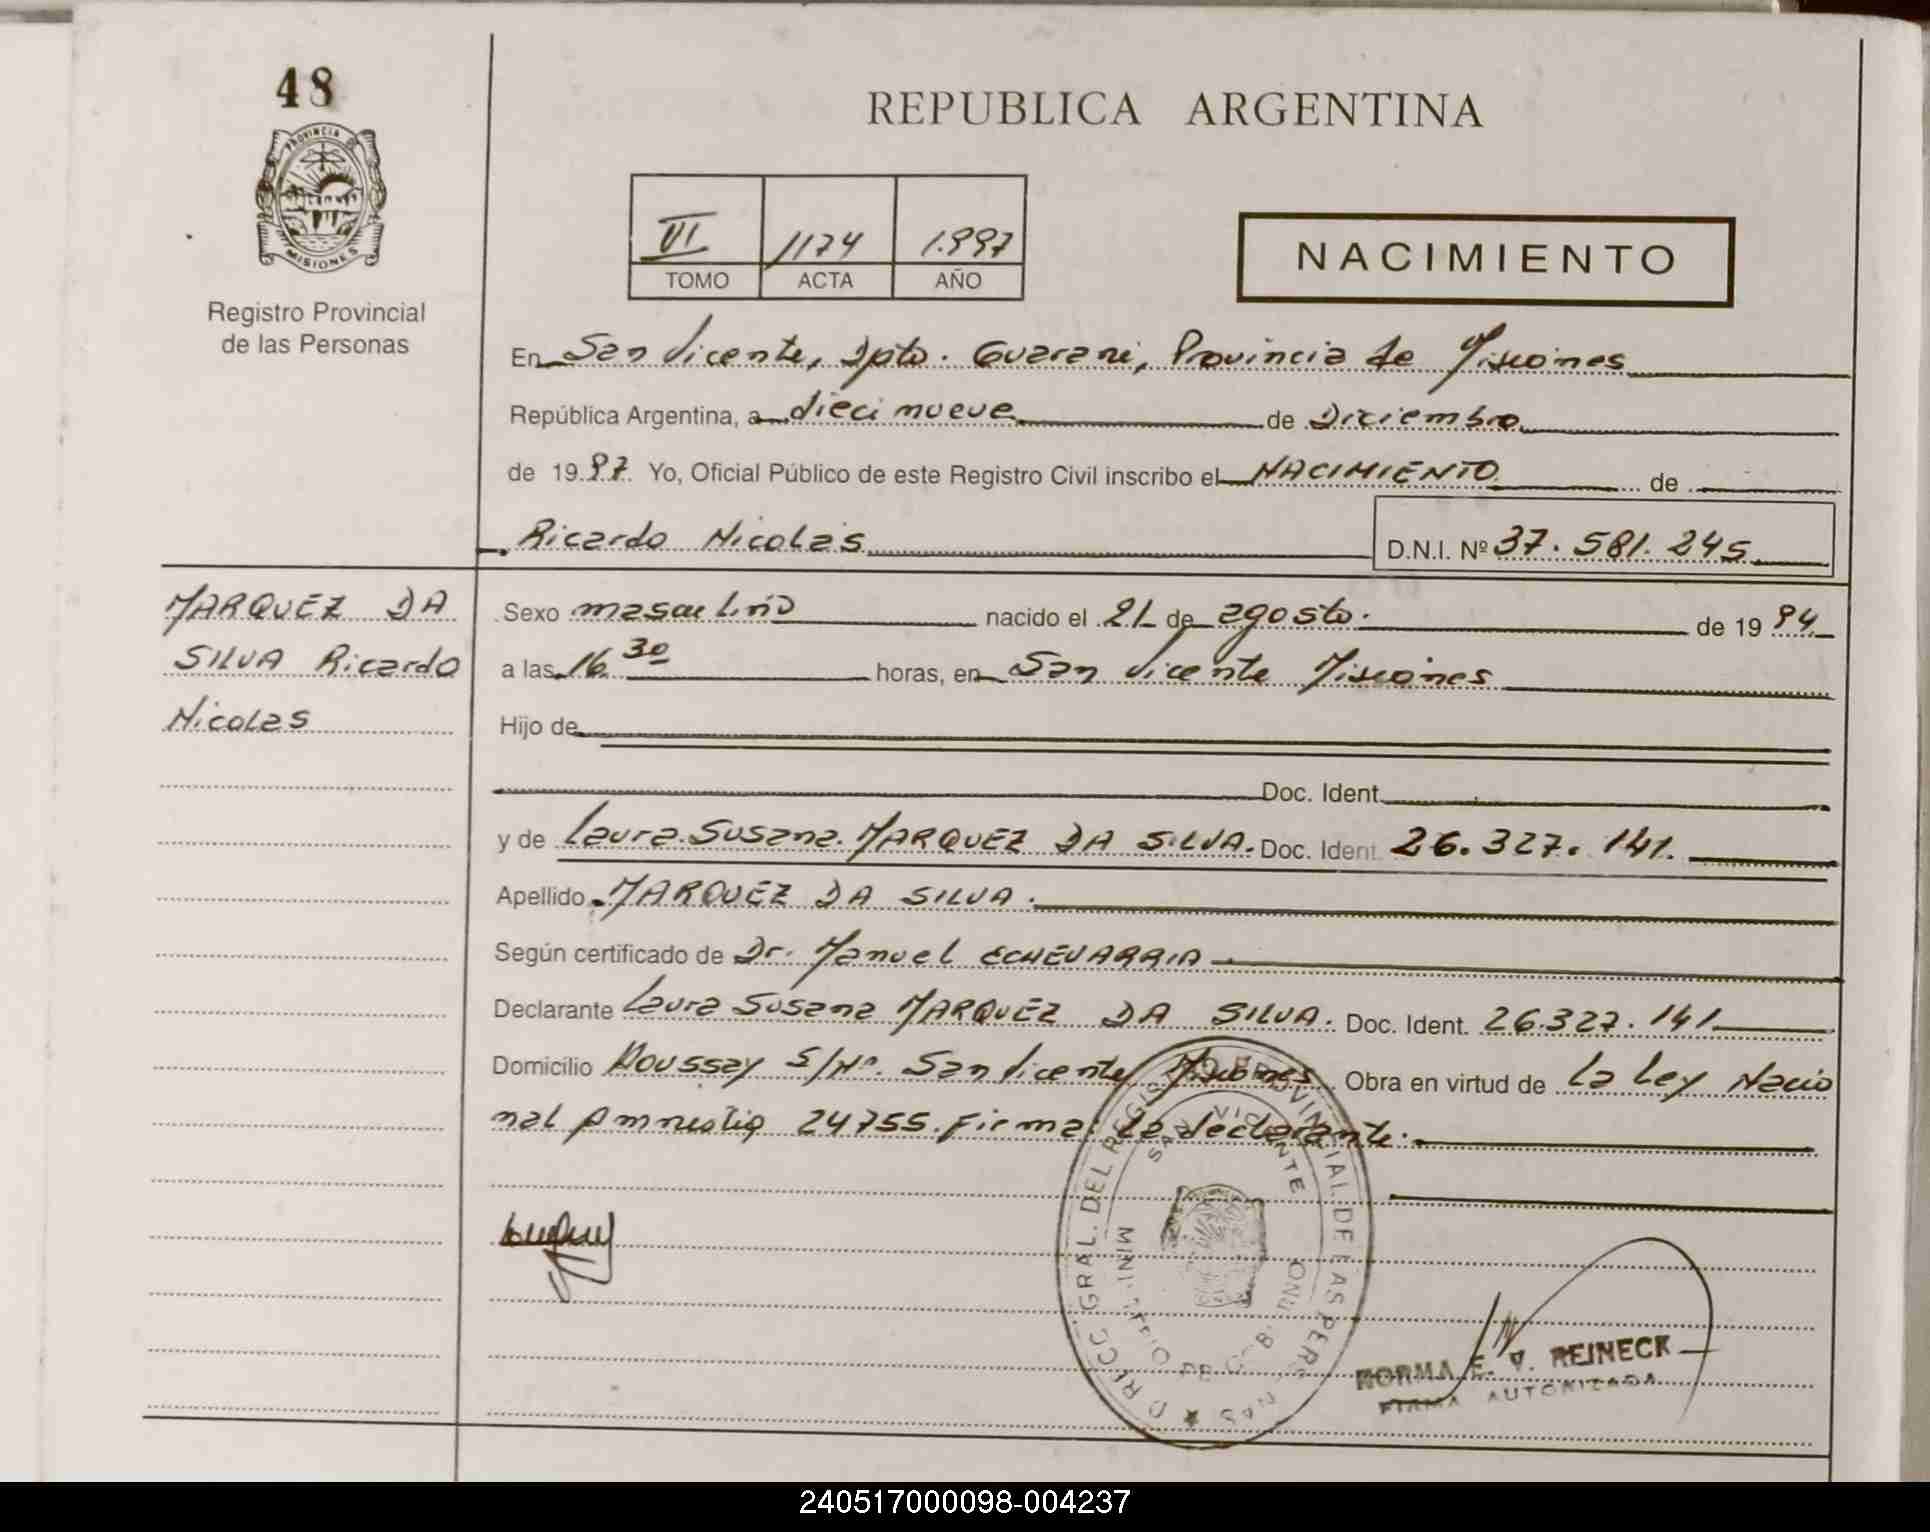 48
PROVINCIA DE
MISIONES
Registro Provincial
de las Personas
REPUBLICA ARGENTINA
VI 1174 1.997
TOMO ACTA AÑO
NACIMIENTO
En San Vicente, Dpto. Guarani, Provincia de Misiones
República Argentina, a dieci nueve de Diciembre
de 1997. Yo, Oficial Público de este Registro Civil inscribo el NACIMIENTO de
Ricardo Nicolás D.N.I. Nº 37.581.245
MARQUEZ DA
SILVA Ricardo
Nicolas
Sexo masculino nacido el 21 de agosto. de 1994
a las 16 30 horas, en San Vicente Misiones
Hijo de
Doc. Ident.
y de Laura Susana MARQUEZ DA SILVA. Doc. Ident. 26.327.141.
Apellido MARQUEZ DA SILVA.
Según certificado de Dr. Manuel ECHEVARRIA
Declarante Laura Susana MARQUEZ DA SILVA. Doc. Ident. 26.327.141
Domicilio Houssay S/Nº. San Vicente Misiones Obra en virtud de La Ley Nacio
nal Amnestia 24755. Firma: La declarante.
DIRECC. GRAL. DEL REGISTRO PROVINCIAL DE LAS PERSONAS
SAN VICENTE
MINISTERIO DE GOBIERNO
NORMA E. V. REINECK
FIRMA AUTORIZADA
240517000098-004237